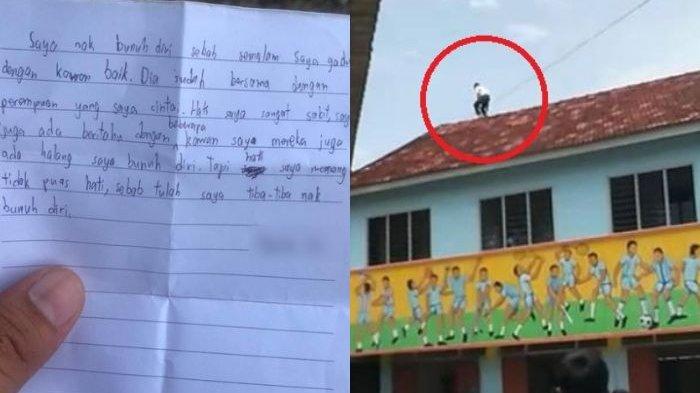 Saya nak bunuh diri sebab semalam saya gaduh
dengan kawan baik. Dia sudah bersama dengan
perempuan yang saya cintai. Hati saya sangat sakit, saya
juga ada beritahu dengan beberapa kawan saya mereka juga
ada halang saya bunuh diri. Tapi hati saya memang
tidak puas hati, sebab itulah saya tiba-tiba nak
bunuh diri.